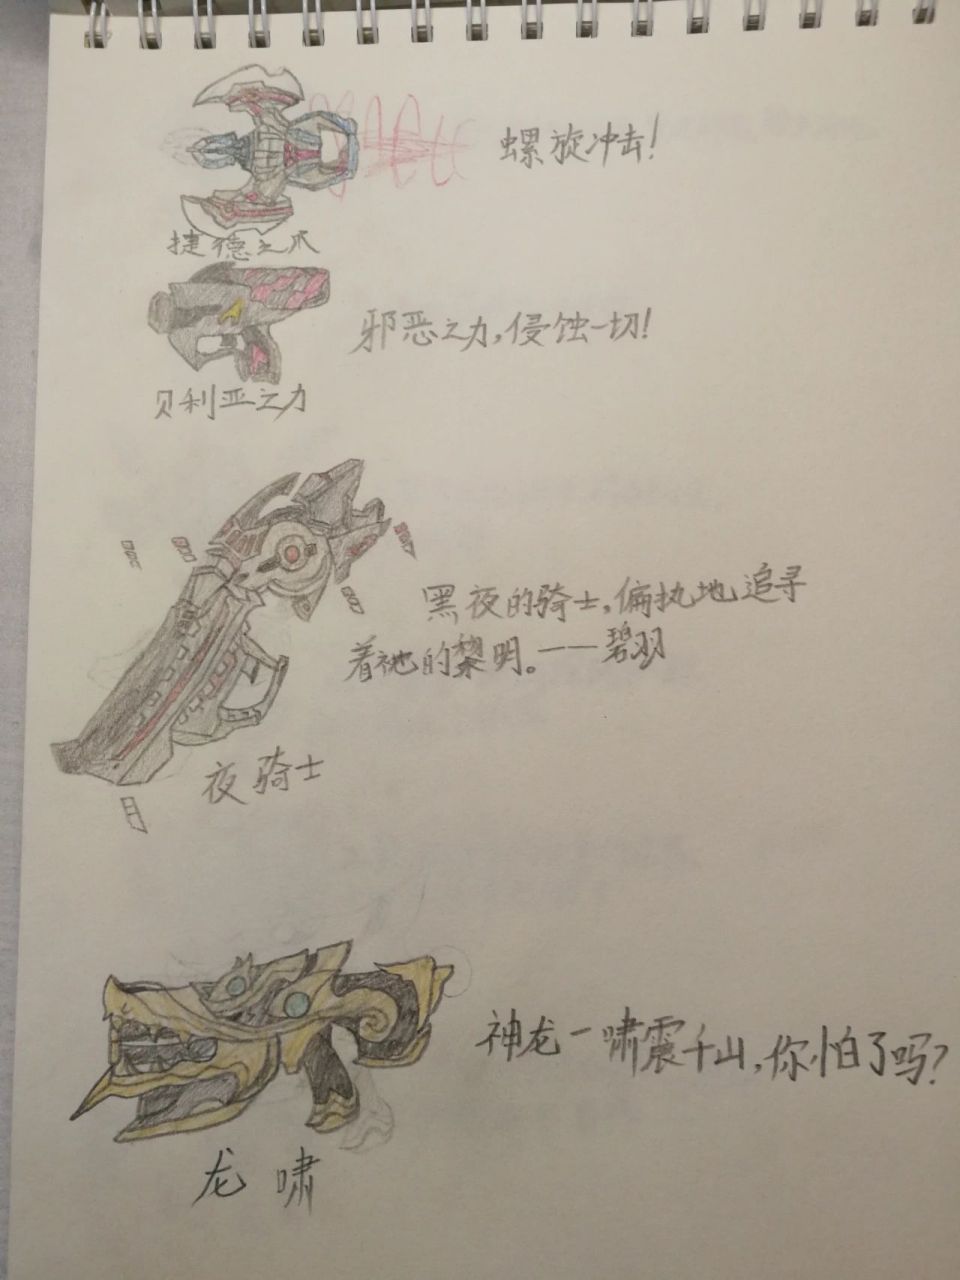 螺旋冲击!
捷德之爪
邪恶之力,侵蚀一切!
贝利亚之力
黑夜的骑士,偏执地追寻
着祂的黎明。——碧羽
夜骑士
神龙一啸震千山,你怕了吗?
龙啸